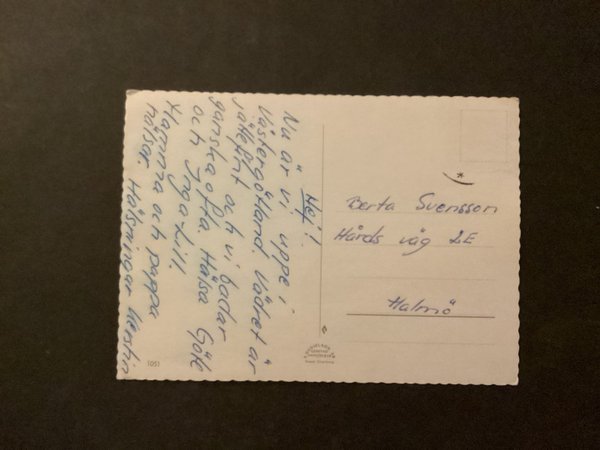 Hej!
Nu är vi uppe i
Västergötland. Vädret är
jättefint
och vi badar
ganska ofta. Hälsa Göte
och Inga-Lill.
Mamma och pappa
hälsar. Hälsningar Kerstin
Berta Svensson
Hårds väg 2E
Malmö
1051